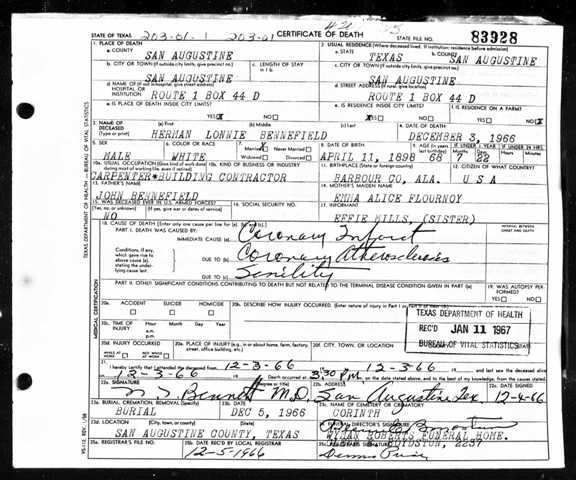 STATE OF TEXAS 203-01-1 203-01 CERTIFICATE OF DEATH STATE FILE NO. 83928
1. PLACE OF DEATH 2. USUAL RESIDENCE (Where deceased lived. If institution: residence before admission)
a. COUNTY SAN AUGUSTINE a. STATE TEXAS b. COUNTY SAN AUGUSTINE
b. CITY OR TOWN (If outside city limits, give precinct no.) c. LENGTH OF STAY c. CITY OR TOWN (If outside city limits, give precinct no.)
SAN AUGUSTINE SAN AUGUSTINE
d. NAME OF (If not in hospital, give street address) HOSPITAL OR INSTITUTION d. STREET ADDRESS (If rural, give location)
ROUTE 1 BOX 44 D ROUTE 1 BOX 44 D
e. IS PLACE OF DEATH INSIDE CITY LIMITS? e. IS RESIDENCE INSIDE CITY LIMITS? f. IS RESIDENCE ON A FARM?
YES NO YES NO YES NO
3. NAME OF DECEASED (Type or print) (a) First (b) Middle (c) Last 4. DATE OF DEATH
HERMAN LONNIE BENNEFIELD DECEMBER 3, 1966
5. SEX 6. COLOR OR RACE 7. Married X Never Married Widowed Divorced 8. DATE OF BIRTH 9. AGE (In years last birthday) IF UNDER 1 YEAR IF UNDER 24 HRS.
MALE WHITE APRIL 11, 1898 68 7 22
10a. USUAL OCCUPATION 10b. KIND OF BUSINESS OR INDUSTRY 11. BIRTHPLACE (State or foreign country) 12. CITIZEN OF WHAT COUNTRY?
CARPENTER BUILDING CONTRACTOR BARBOUR CO, ALA. U S A
13. FATHER'S NAME 14. MOTHER'S MAIDEN NAME
JOHN BENNEFIELD EMMA ALICE FLOURNOY
15. WAS DECEASED EVER IN U.S. ARMED FORCES? 16. SOCIAL SECURITY NO. 17. INFORMANT
(Yes, no, or unknown) (If yes, give war or dates of service)
NO EFFIE MILLS, (SISTER)
18. CAUSE OF DEATH (Enter only one cause per line for (a), (b), and (c).) INTERVAL BETWEEN ONSET AND DEATH
PART I. DEATH WAS CAUSED BY: IMMEDIATE CAUSE (a) Coronary Infarct
Conditions, if any, which gave rise to above cause (a), stating the underlying cause last. DUE TO (b) Coronary Atherosclerosis
DUE TO (c) Senility
PART II. OTHER SIGNIFICANT CONDITIONS CONTRIBUTING TO DEATH BUT NOT RELATED TO THE TERMINAL DISEASE CONDITION GIVEN IN PART I (a) 19. WAS AUTOPSY PERFORMED?
YES NO
20a. ACCIDENT SUICIDE HOMICIDE 20b. DESCRIBE HOW INJURY OCCURRED.
20c. TIME OF INJURY Hour Month Day Year a.m. p.m.
TEXAS DEPARTMENT OF HEALTH
REC'D JAN 11 1967
BUREAU OF VITAL STATISTICS
20d. INJURY OCCURRED WHILE AT WORK NOT WHILE AT WORK 20e. PLACE OF INJURY (e.g., in or about home, farm, factory, street, office building, etc.) 20f. CITY, TOWN, OR LOCATION
21. I hereby certify that I attended the deceased from 12-3-66 to 12-3-66 and last saw the deceased alive
on 12-3-66 Death occurred at 3:30 P.m. on the date stated above, and to the best of my knowledge, from the causes stated.
22a. SIGNATURE 22b. ADDRESS 22c. DATE SIGNED
Bennett M.D. San Augustine Tex 12-4-66
23a. BURIAL, CREMATION, REMOVAL (Specify) 23b. DATE 23c. NAME OF CEMETERY OR CREMATORY
BURIAL DEC 5, 1966 CORINTH
23d. LOCATION (City, town, or county) (State) 24. FUNERAL DIRECTOR'S SIGNATURE
SAN AUGUSTINE COUNTY, TEXAS WYMAN ROBERTS FUNERAL HOME.
BOYDSTON, 2237
25a. REGISTRAR'S FILE NO. 25b. DATE REC'D BY LOCAL REGISTRAR
12-5-1966
TEXAS DEPARTMENT OF HEALTH — BUREAU OF VITAL STATISTICS
MEDICAL CERTIFICATION